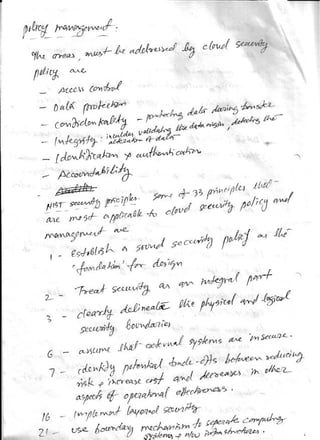 policy management :
The areas, must be addressed by cloud security
policy are
- Access control
- Data protection
- Confidentiality - protecting data during transfer
- Integrity : includes validating the data origin, detecting the
alteration of data
- Identification & authentication
- Accountability
NIST security principles. Some of 33 principles that
are most applicable to cloud security policy and
management are
1 - Establish a sound security policy as the
'foundation' for design
2 - Treat security as an integral part
3 - clearly delineate the physical and logical
security boundaries
6 - assume that external systems are insecure.
7 - identify potential trade-offs between reducing
risk & increase cost and decreases in other
aspects of operational effectiveness.
16 - Implement layered security
21 - use boundary mechanism to separate computing
systems & n/w infrastructures.